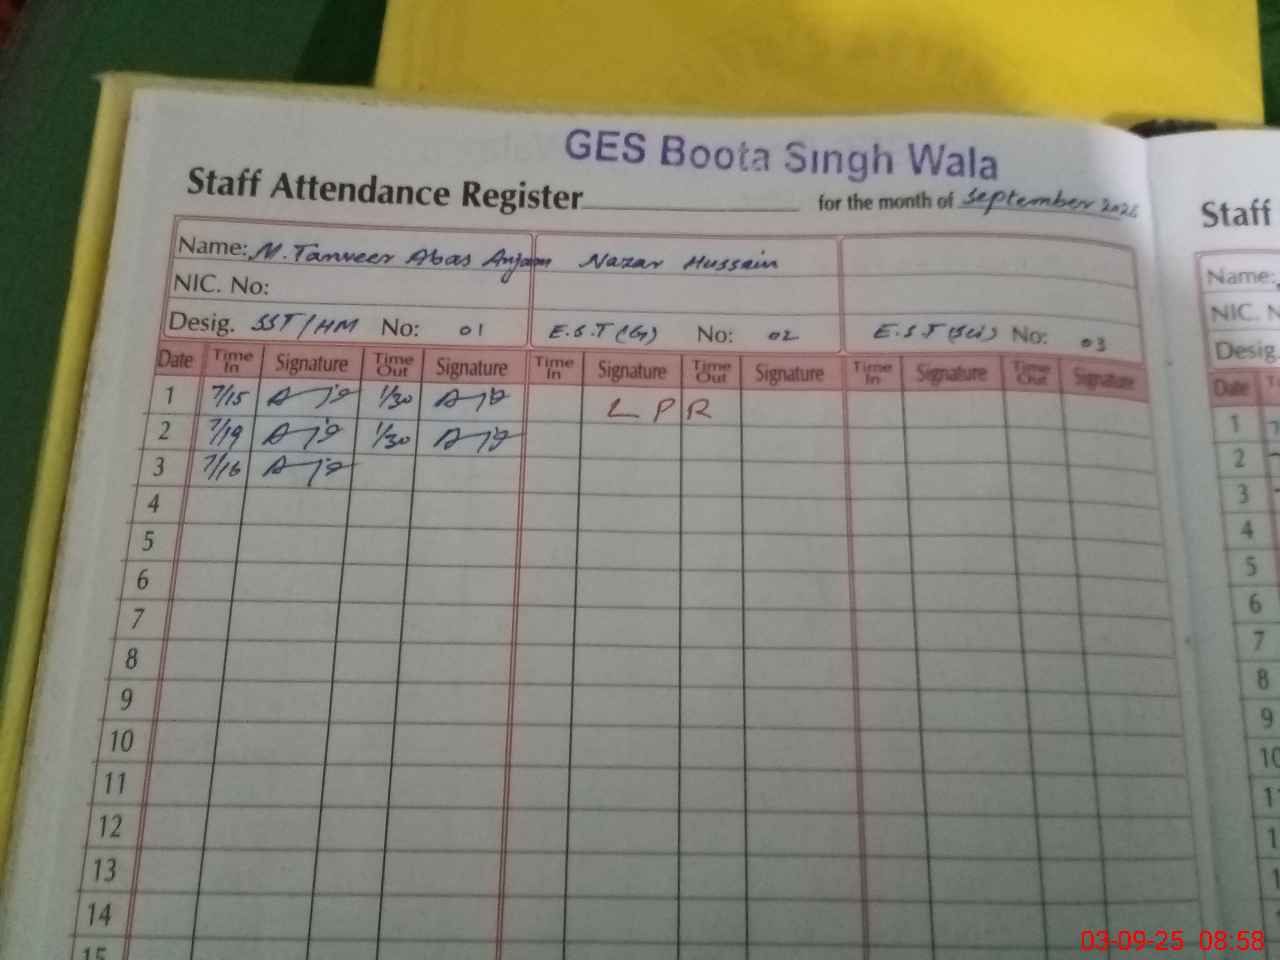 GES Boota Singh Wala
Staff Attendance Register for the month of September
Name: M. Tanveer Abas Anjam Nazar Hussain
NIC. No:
Desig. SST/HM No: 01 E.S.T (G) No: 02 E.S.T (Sci) No: 03
Date Time In Signature Time Out Signature Time In Signature Time Out Signature Time In Signature Time Out Signature
1 7/15 1/30 L P R
2 7/19 1/30
3 7/16
4
5
6
7
8
9
10
11
12
13
14
15
Staff
Name:
NIC. N
Desig.
Date
1
2
3
4
5
6
7
8
9
10
03-09-25 08:58